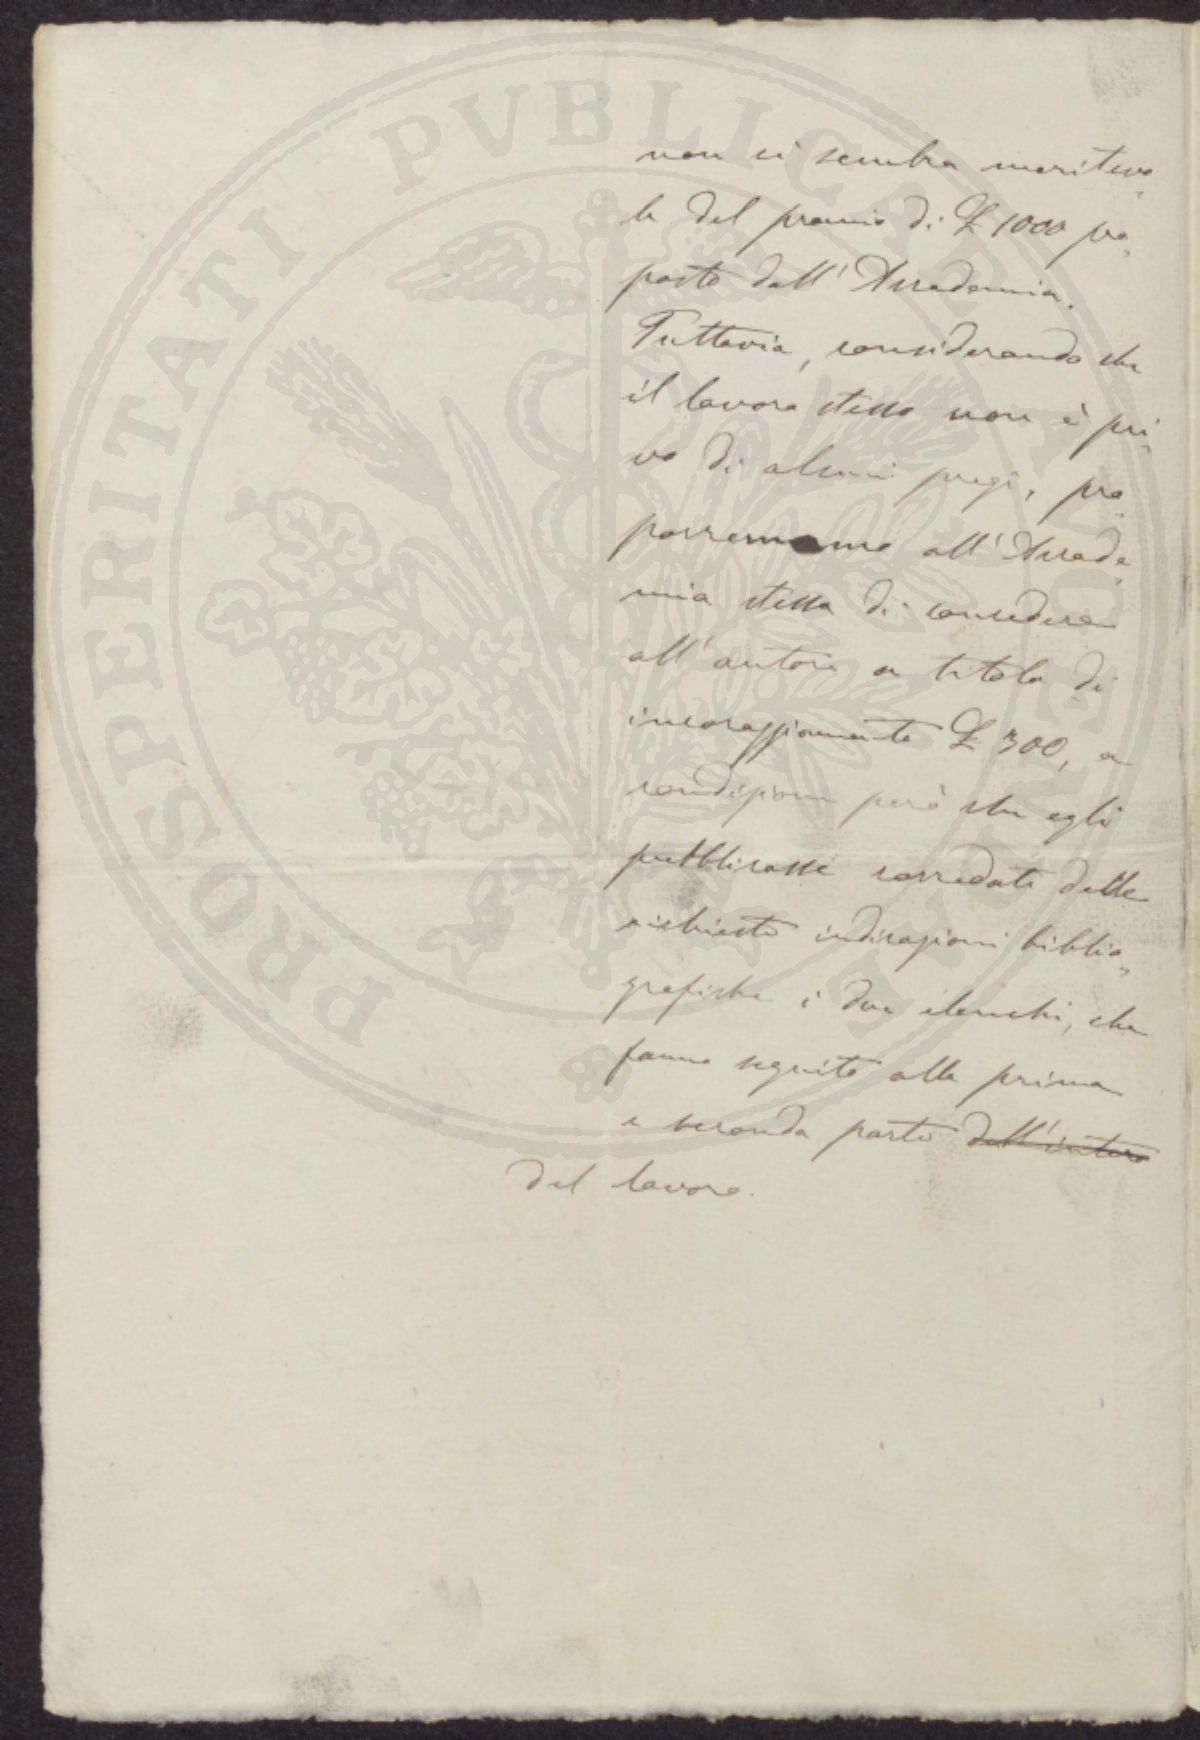 PROSPERITATI PVBLICAE AVGENDAE
non ci sembra meritevo„
le del premio di £ 1000 pro„
posto dall'Accademia.
Tuttavia, considerando che
il lavoro stesso non è pri„
vo di alcuni pregi, pro„
porremmo all'Accade„
mia stessa di concedere
all'autore a titolo di
incoraggiamento £ 300, a
condizione però che egli
pubblicasse corredati delle
richieste indicazioni biblio„
grafiche i due elenchi, che
fanno seguito alla prima
e seconda parte dell'intero
del lavoro.